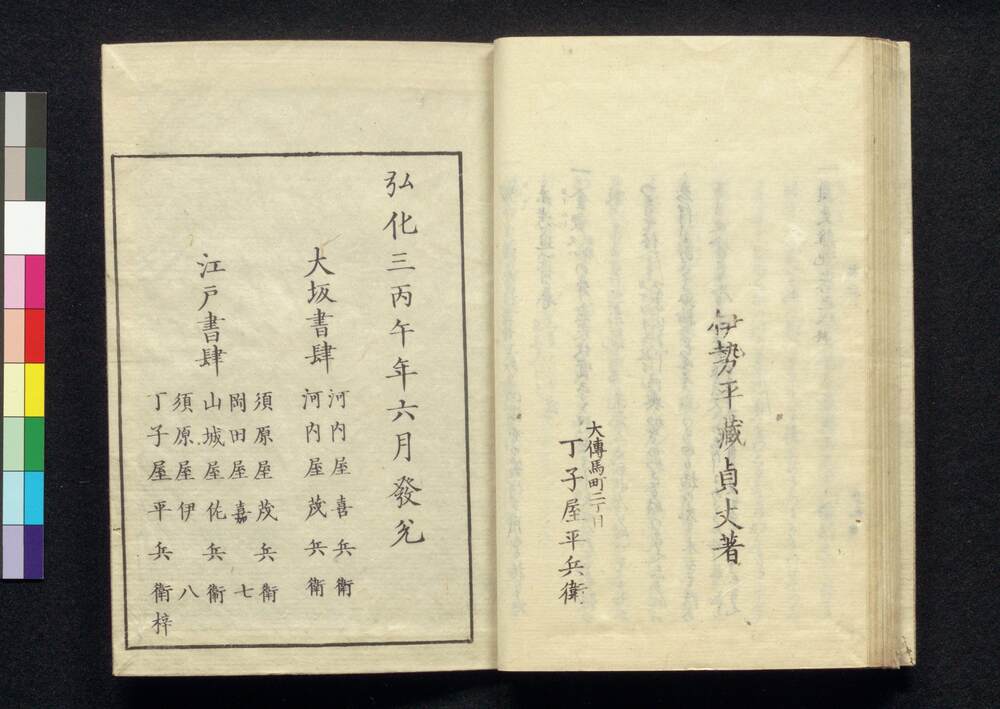 伊勢平藏貞丈著
大傳馬町二丁目
丁子屋平兵衛
弘化三丙午年六月發兌
大坂書肆
河内屋喜兵衛
河内屋茂兵衛
江戸書肆
須原屋茂兵衛
岡田屋嘉七
山城屋佐兵衛
須原屋伊八
丁子屋平兵衛梓